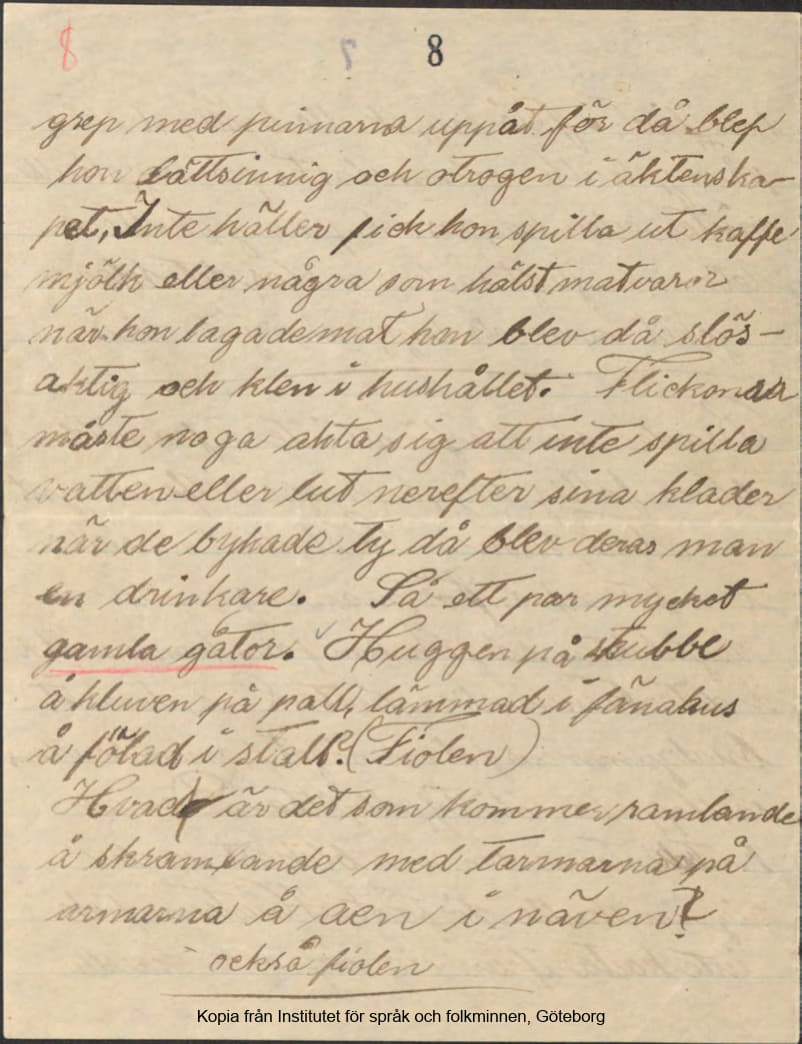 8 8
grep med pinnarna uppåt för då blef
hon lättsinnig och otrogen i äktenska-
pet, Inte häller fick hon spilla ut kaffe
mjölk eller några som hälst matvaror
när hon lagade mat hon blev då slös-
aktig och klen i hushållet. Flickorna
måste noga akta sig att inte spilla
vatten eller lut nerefter sina kläder
när de bykade ty då blev deras man
en drinkare. Så ett par mycket
gamla gåtor. Huggen på stubbe
å kluven på pall, lämmad i fänahus
å fölad i stall? (Fiolen)
Hvad är det som kommer ramlande
å skramlande med tarmarna på
armarna å aen i näven?
också fiolen
Kopia från Institutet för språk och folkminnen, Göteborg